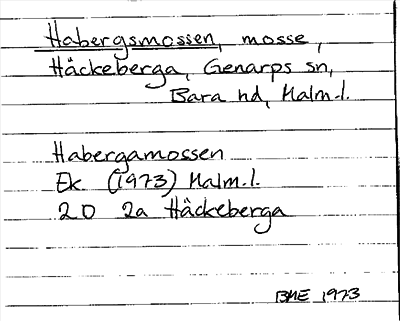 Habergsmossen, mosse,
Häckeberga, Genarps sn,
Bara hd, Malm.l.
Habergamossen
Ek (1973) Malm.l.
2D 2a Häckeberga
BME 1973